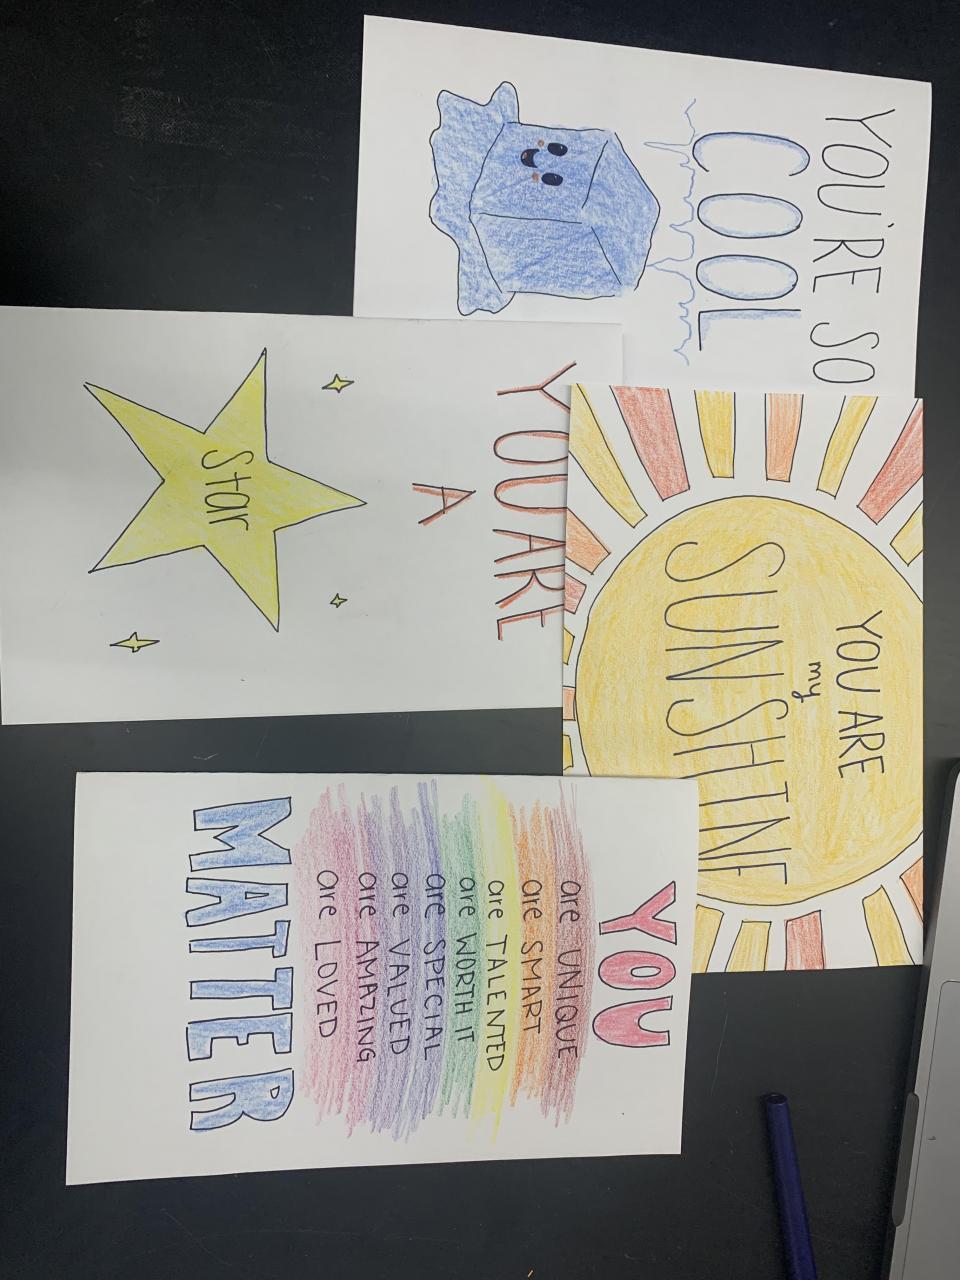 YOU'RE SO
COOL
YOU ARE
A
Star
YOU ARE
my
SUNSHINE
YOU
are UNIQUE
are SMART
are TALENTED
are WORTH IT
are SPECIAL
are VALUED
are AMAZING
are LOVED
MATTER